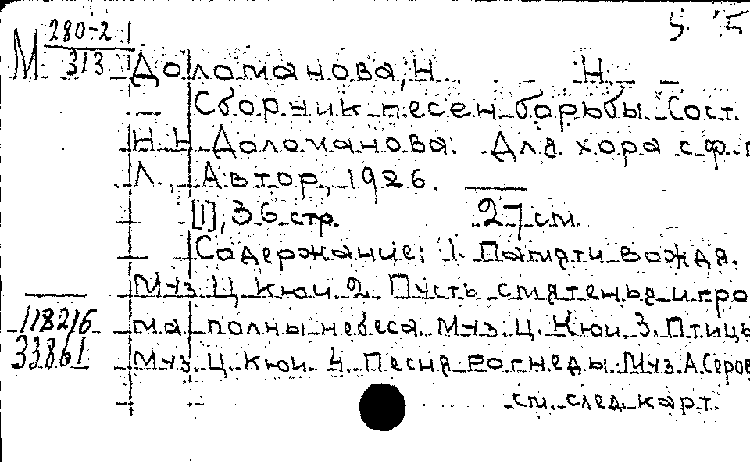 М 280-2
313
Доломанова, Н. Н.
Сборник песен борьбы. Сост.
Н.Н. Доломанова. Для хора с ф.
Л., Автор, 1926.
[1], 36 стр. 27 см.
Содержание: 1. Памяти вождя.
Муз. Ц. Кюи 2. Пусть смятенья и гро
118216 ма полны небеса. Муз. Ц. Кюи 3. Птицы
33861 Муз. Ц. Кюи. 4. Песня Рогнеды. Муз. А. Серов
см. след. карт.